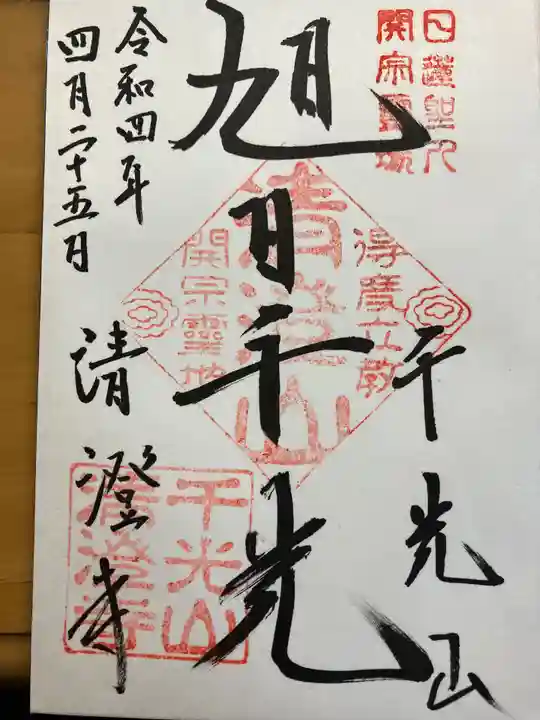 日蓮聖人
開宗霊場
千光山
得度立教
清澄山
開宗霊地
旭日千光
令和四年
四月二十五日
清澄寺
千光山
清澄寺